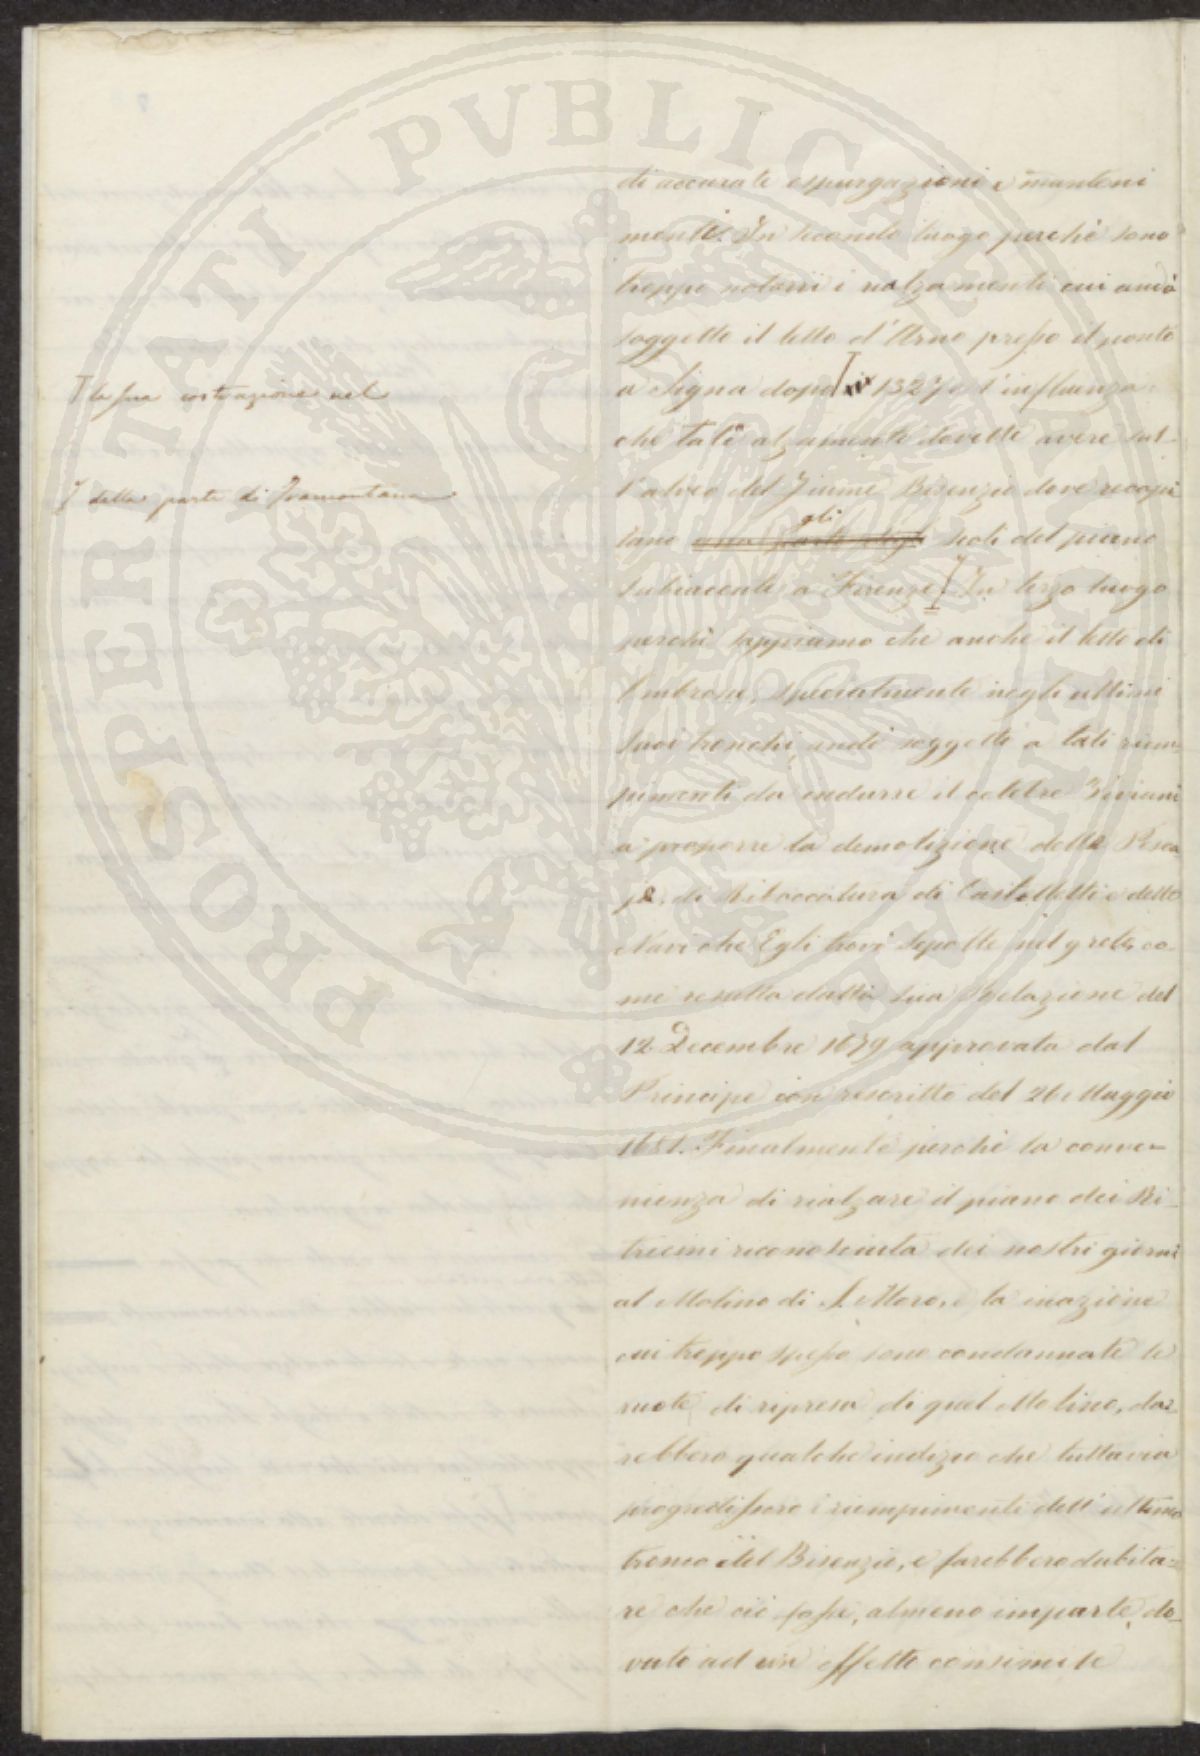 PROSPERITATI PVBLICAE
di accurate espurgazioni e manteni
menti. In secondo luogo perchè sono
troppo notorii i rialzamenti cui andò
soggetto il letto d'Arno presso il ponte
a Signa dopo il 1327, e l'influenza
che tali alzamenti dovette avere sul-
l'alveo del Fiume Bisenzio dove recapi
tano una parte degli gli scoli del piano
subiacente a Firenze. In terzo luogo
perchè sappiamo che anche il letto di
Ombrone, specialmente negli ultimi
suoi tronchi, andò soggetto a tali riem-
pimenti da indurre il celebre Viviani
a proporre la demolizione delle Pesca
je, di Riboccatura di Castelletti e delle
Navi che Egli trovò sepolte nel greto, co-
me resulta dalla sua Relazione del
12 Decembre 1679 approvata dal
Principe con rescritto del 26 Maggio
1681. Finalmente perchè la conve-
nienza di rialzare il piano dei Ri-
trecini riconosciuta dei nostri giorni
al Molino di S. Moro, e la inazione
cui troppo spesso sono condannate le
ruote di ripresa di quel Molino, da-
rebbero qualche indizio che tuttavia
progredissero i riempimenti dell'ultimo
tronco del Bisenzio, e farebbero dubita-
re che ciò fosse, almeno in parte, do-
vuto ad un effetto consimile
la sua costruzione nel
della parte di Tramontana